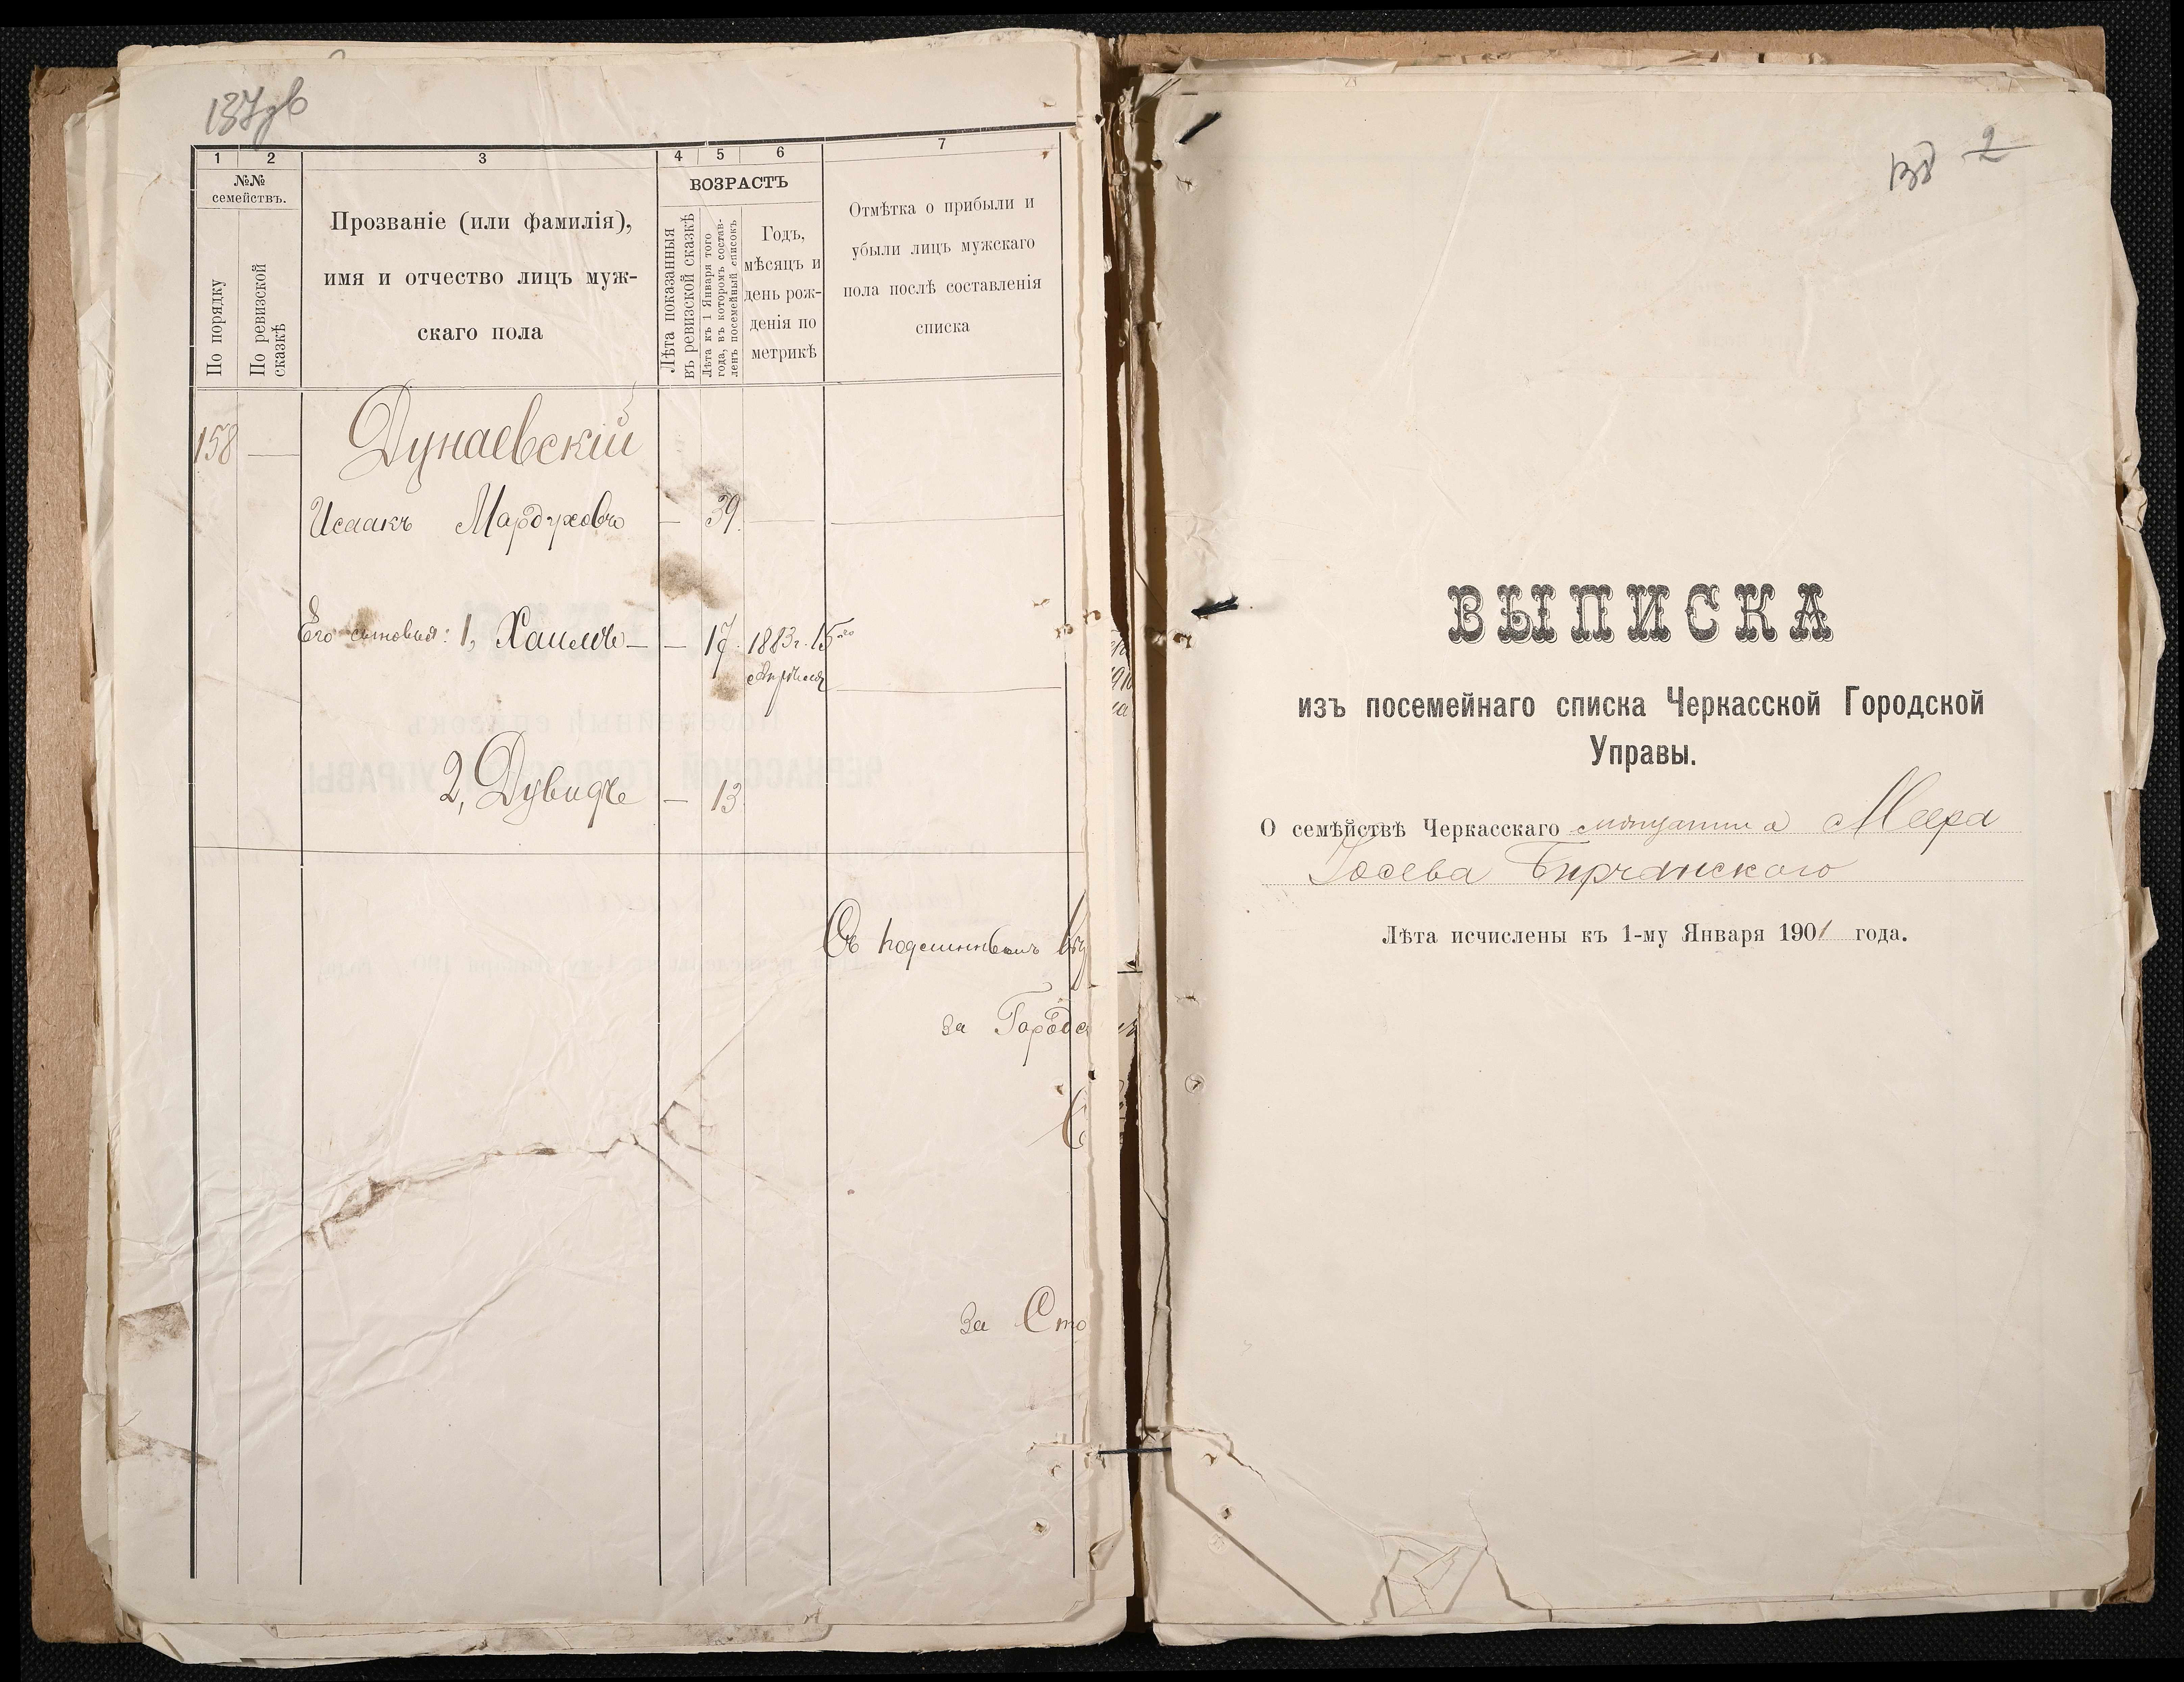 137об
1 2 3 4 5 6 7
№№ семействъ.
По порядку
По ревизской сказкѣ
Прозваніе (или фамилія),
имя и отчество лицъ муж-
скаго пола
ВОЗРАСТЪ
Лѣта показанныя
въ ревизской сказкѣ
Лѣта къ 1 Января того
года, въ которомъ состав-
ленъ посемейный списокъ
Годъ,
мѣсяцъ и
день рож-
денія по
метрикѣ
Отмѣтка о прибыли и
убыли лицъ мужскаго
пола послѣ составленія
списка
158 — Дунаевскій
Исаакъ Мардуховъ — 39.
Его сыновья: 1, Хаимъ — — 17. 1883 г. 15го
Апрѣля
2, Дувидъ — 13
Съ подлиннымъ
за Городс
С
За Сто
138 2
ВЫПИСКА
изъ посемейнаго списка Черкасской Городской
Управы.
О семѣйствѣ Черкасскаго мѣщанина Меера
Іосева Бирчанскаго
Лѣта исчислены къ 1-му Января 1901 года.